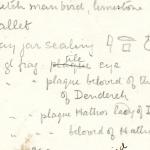 etch man bird, limestone
allet
ay jar sealing
gl frag tile eye
" plaque beloved of th
of Dendereh
" plaque Hathor lady of D
" beloved of Hathor